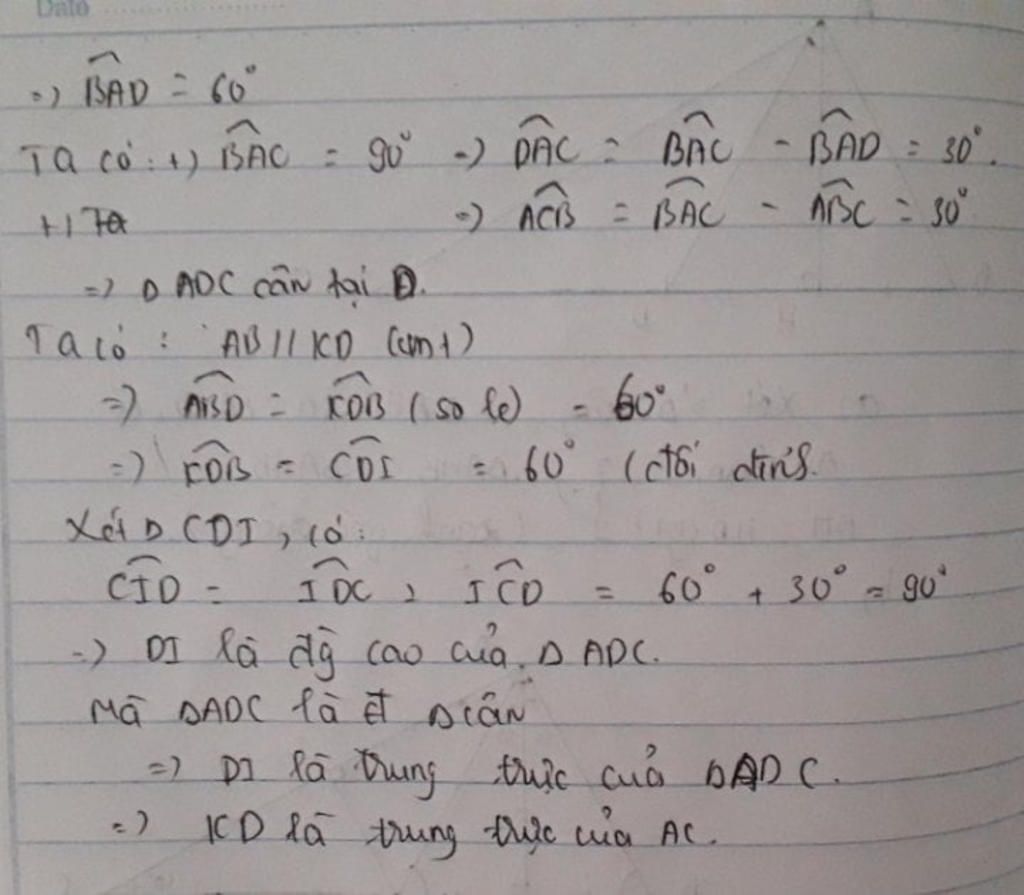 Dato
=) BAD = 60°
Ta có: +) BAC = 90° =) DAC = BAC - BAD = 30°.
+) Ta =) ACB = BAC - ABC = 30°
=) Δ ADC cân tại D.
Ta có : AB // KD (cmt)
=) ABD = KDB (so le) = 60°
=) KDB = CDI = 60° (đối đỉnh).
Xét Δ CDI, có:
CID = IDC , ICD = 60° + 30° = 90°
=) DI là đg̀ cao của Δ ADC.
Mà ΔADC là Δcân
=) DI là trung trực của ΔADC.
=) KD là trung trực của AC.